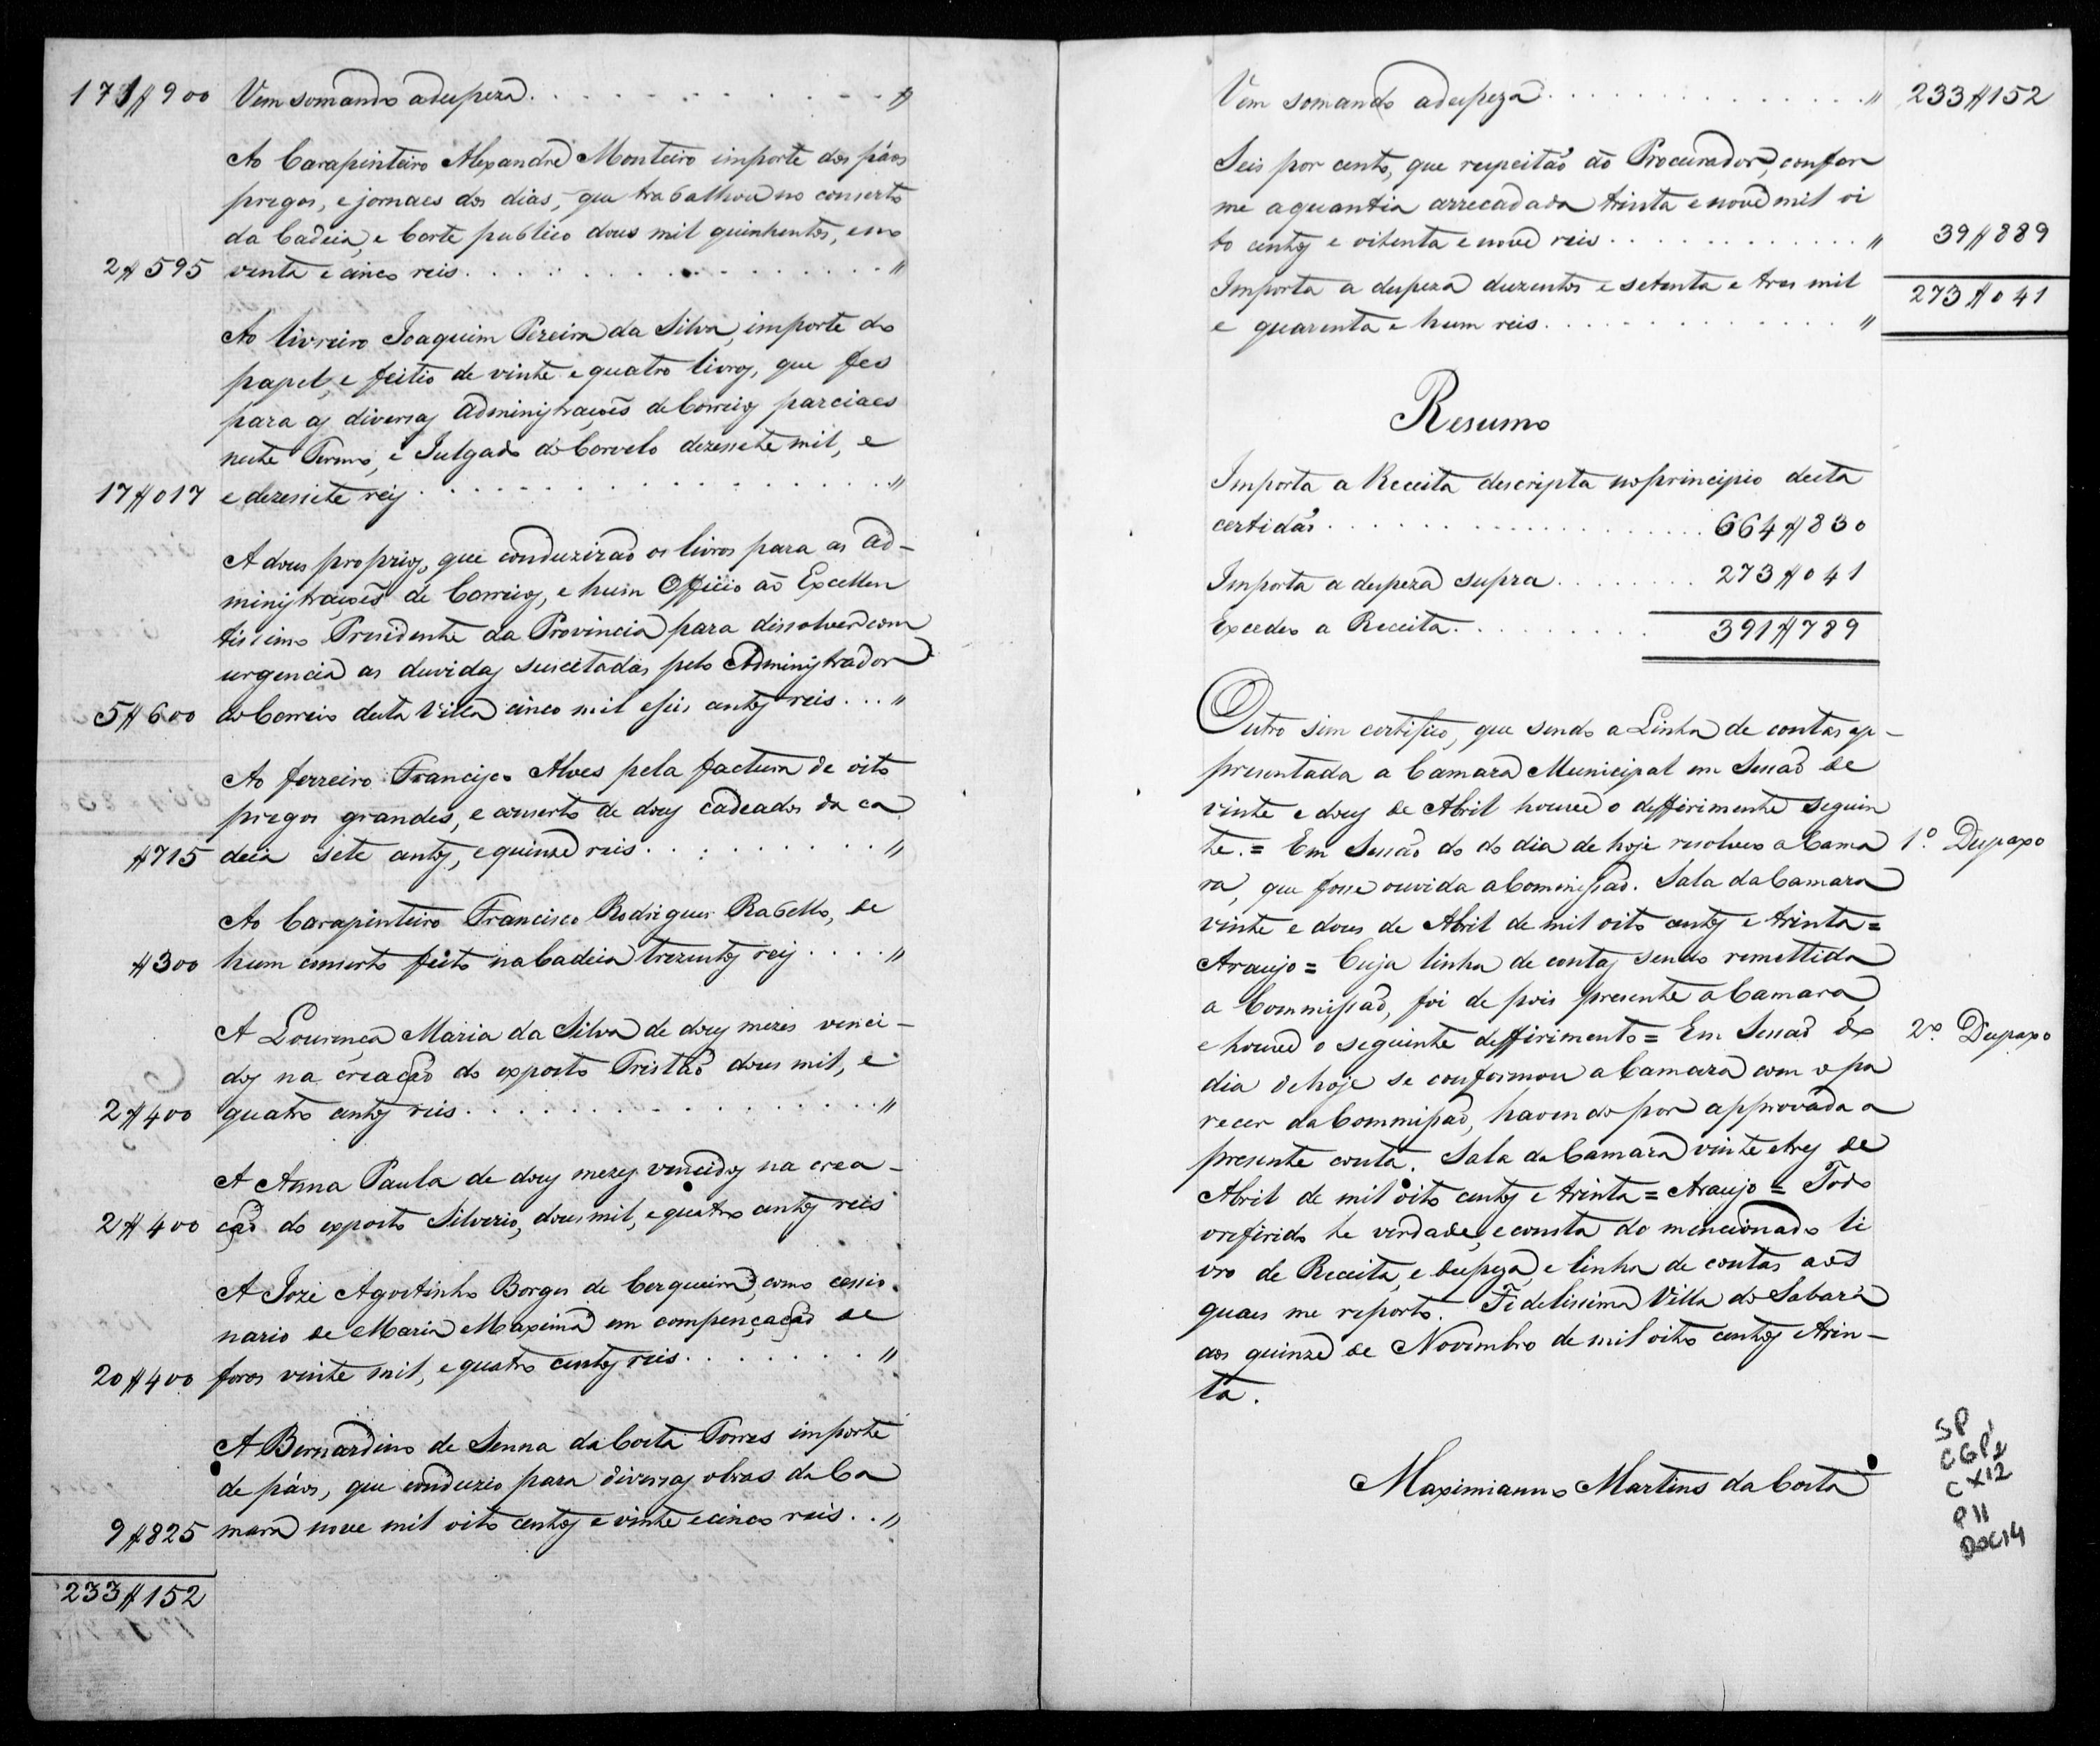 171$900 Vem somando a despeza. . . . . . . . . . "
Ao Carapinteiro Alexandre Monteiro importe dos páos
pregos, e jornaes dos dias, que trabalhou no conserto
da Cadeia, e Corte publico dous mil quinhentos, e no
2$595 venta e cinco reis. . . . . . . . . . . "
Ao livreiro Joaquim Pereira da Silva, importe do
papel, e feitio de vinte e quatro livros, que fes
para as diversas Administraçoẽs de Correios parciaes
neste Termo, e Julgado do Corvelo dezessete mil, e
17$017 e dezessete reis . . . . . . . . . . . "
A dous proprios, que conduzirão os livros para as Ad-
ministraçoẽs de Correios, e hum Officio ão Excellen
tissimo Presidente da Provincia para dissolver com
urgencia as duvidas suscitadas pelo Administrador
5$600 do Correio desta Villa cinco mil e seis centos reis . . . "
Ao ferreiro Francisco Alves pela factura de oito
pregos grandes, e conserto de dous cadeados da ca
$715 deia sete centos, e quinze reis . . . . . . . "
Ao Carapinteiro Francisco Rodrigues Rabello, de
$300 hum conserto feito na Cadeia trezentos reis . . . . "
A Lourença Maria da Silva de dous mezes venci-
dos na creação do exposto Tristão dous mil, e
2$400 quatro centos reis . . . . . . . . . . . "
A Anna Paula de dous mezes vencidos na crea-
2$400 ção do exposto Silverio, dous mil, e quatro centos reis
A Joze Agostinho Borges de Cerqueira, como cessio
nario de Maria Maxima em compençação de
20$400 foros vinte mil, e quatro centos reis . . . . . . . "
A Bernardino de Senna da Costa Torres importe
de páos, que conduzio para diversas obras da Ca
9$825 mara nove mil oito centos e vinte e cinco reis . . "
233$152
Vem somando a despeza . . . . . . . . . . " 233$152
Seis por cento, que respeitão ão Procurador, confor
me a quantia arrecadada trinta e nove mil oi
to centos e oitenta e nove reis . . . . . . . . " 39$889
Importa a despeza duzentos e setenta e tres mil 273$041
e quarenta e hum reis . . . . . . . . . . "
Resumo
Importa a Receita descripta no principio desta
certidão . . . . . . . . . . . 664$830
Importa a despeza supra . . . . . . . 273$041
Excedeo a Receita . . . . . . . . 391$789
Outro sim certifico, que sendo a Linha de contas ap-
presentada a Camara Municipal em Sessão de
vinte e dous de Abril houve o differimento seguin
te. = Em Sessão do do dia de hoje resolveo a Cama 1.º Despaxo
ra, que fosse ouvida a Commissão. Sala da Camara
vinte e dous de Abril de mil oito centos e trinta =
Araujo = Cuja linha de contas sendo remettida
a Commissão, foi de pois presente a Camara,
e houve o seguinte differimento = Em Sessão do 2.º Despaxo
dia de hoje se conformou a Camara com o pa
recer da Commissão, havendo por approvada a
presente conta. Sala da Camara vinte e tres de
Abril de mil oito centos e trinta = Araujo = Todo
o referido he verdade, e consta do mencionado li
vro de Receita, e despeza, e linha de contas aos
quaes me reporto. Fidelissima Villa do Sabará
aos quinze de Novembro de mil oito centos e trin-
ta.
Maximianno Martins da Costa
SP
CGP1
CX12
P11
DOC14